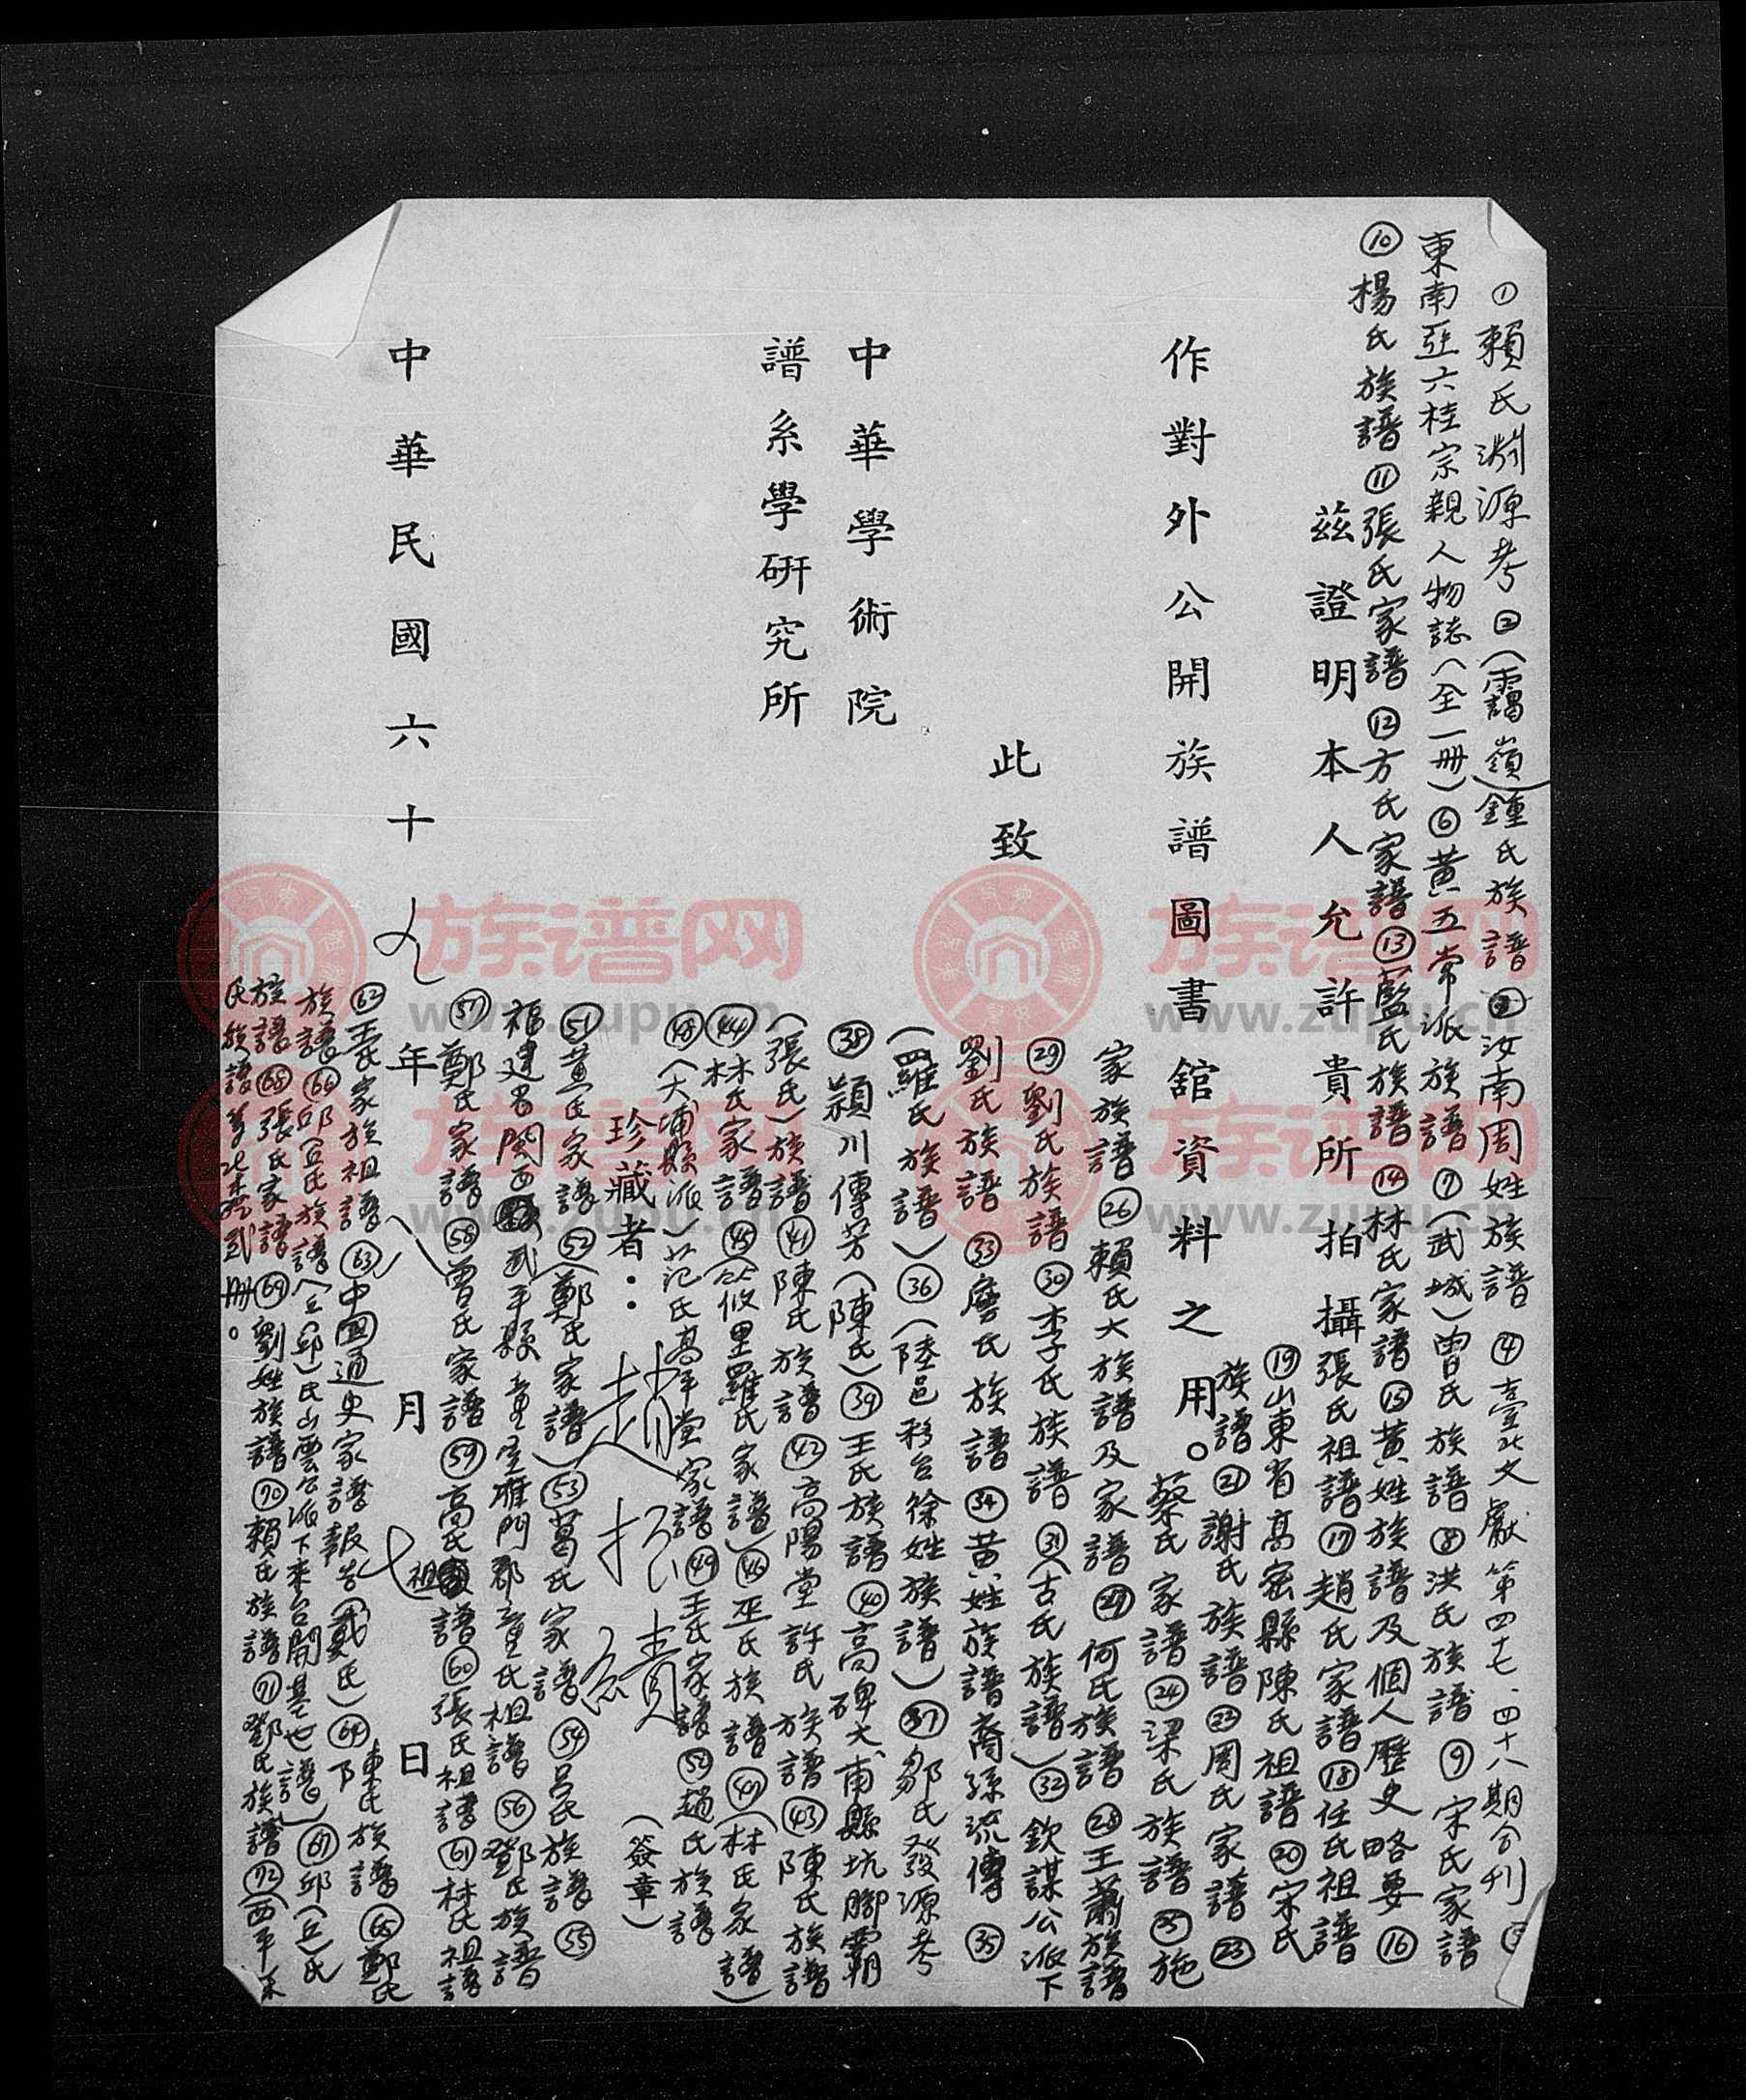 ①賴氏淵源考②(靄嶺)鍾氏族譜③汝南周姓族譜④臺北文獻第四十七、四十八期合刊⑤
東南亞六桂宗親人物誌(全一冊)⑥黃五常派族譜⑦(武城)曾氏族譜⑧洪氏族譜⑨宋氏家譜
⑩楊氏族譜⑪張氏家譜⑫方氏家譜⑬藍氏族譜⑭林氏家譜⑮黃姓族譜及個人歷史略要⑯
茲證明本人允許貴所拍攝
張氏祖譜⑰趙氏家譜⑱任氏祖譜
⑲山東省高密縣陳氏祖譜⑳宋氏
族譜㉑謝氏族譜㉒周氏家譜㉓
作對外公開族譜圖書館資料之用。
蔡氏家譜㉔梁氏族譜㉕施
家族譜㉖賴氏大族譜及家譜㉗何氏族譜㉘王蕭族譜
此致
㉙劉氏族譜㉚李氏族譜㉛(古氏族譜)㉜欽謀公派下
劉氏族譜㉝詹氏族譜㉞黃姓族譜裔孫流傳㉟
(羅氏族譜)㊱(陸邑移台徐姓族譜)㊲鄒氏發源考
中華學術院
㊳潁川傳芳(陳氏)㊴王氏族譜㊵高碑大埔縣坑腳霸
譜系學研究所
(張氏)族譜㊶陳氏族譜㊷高陽堂許氏族譜㊸陳氏族譜
㊹林氏家譜㊺(筱里羅氏家譜)㊻巫氏族譜㊼(林氏家譜)
㊽(大埔縣派)范氏高平堂家譜㊾王氏家譜㊿趙氏族譜
珍藏者:
(簽章)
(51)黃氏家譜(52)(鄭氏家譜)(53)葛氏家譜(54)呂氏族譜(55)
福建省閩西武平縣童屋雁門郡童氏祖譜(56)鄧氏族譜
(57)鄭氏家譜(58)曾氏家譜(59)高氏祖譜(60)張氏祖譜(61)林氏祖譜
中華民國六十九年八月七日
(62)王氏家族祖譜(63)中國通史家譜報告(戴氏)(64)陳氏族譜(65)鄭氏
族譜(66)邱氏族譜(丘(邱)氏山雲公派下來台開基世譜)(67)邱(丘)氏
族譜(68)張氏家譜(69)劉姓族譜(70)賴氏族譜(71)鄧氏族譜(72)西平
氏族譜 貳冊。
族谱网
www.zupu.cn
族谱网
www.zupu.cn
族谱网
www.zupu.cn
族谱网
www.zupu.cn